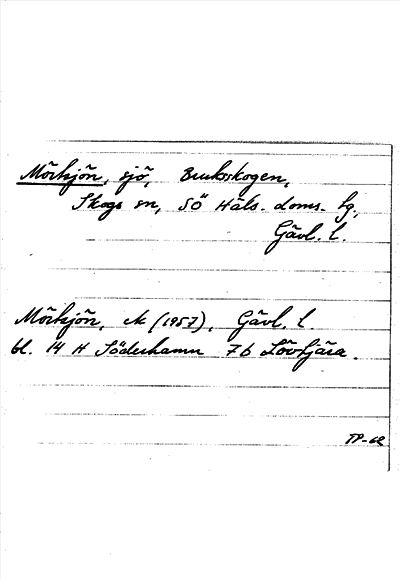 Mörtsjön, sjö, Bruksskogen,
Skogs sn, SÖ Häls. doms. sg.,
Gävl. l.
Mörtsjön, ek (1957), Gävl. l.
bl. 14 H Söderhamn 7b Lövtjära.
TP-62